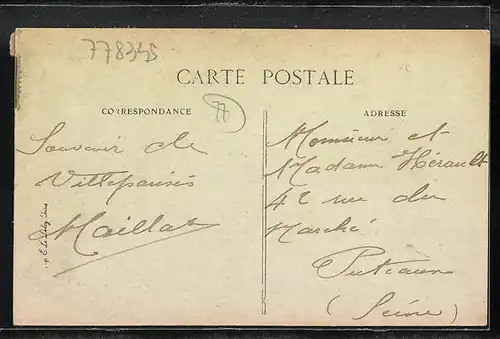 778345
CARTE POSTALE
CORRESPONDANCE
77
ADRESSE
Souvenir de
Villeparisis
Maillat
Monsieur et
Madame Hérault
42 rue du
Marché
Puteaux
(Seine)